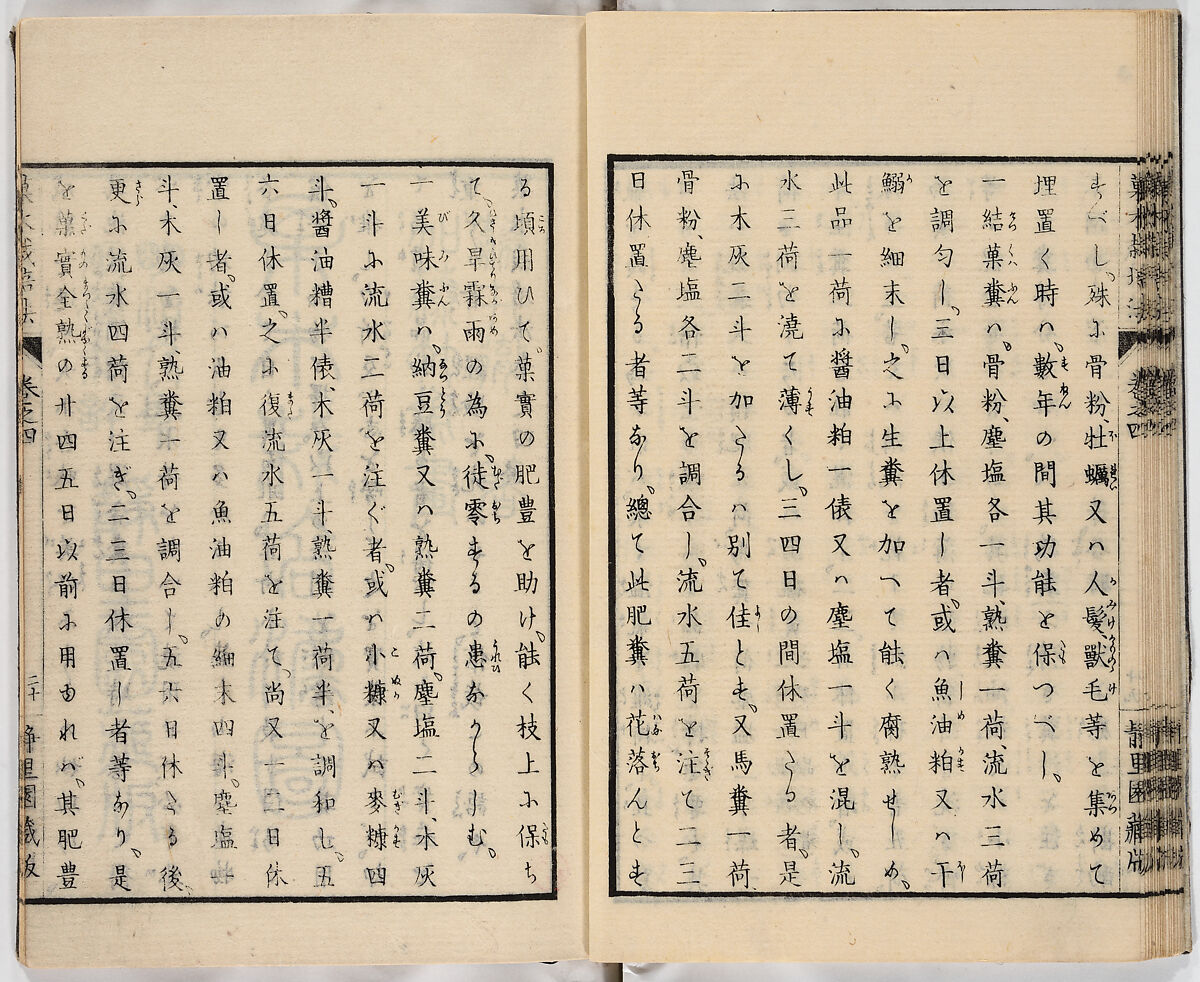 菓木栽培法
卷之四
靜里園藏版
すべし、殊に骨粉、牡蠣又ハ人髪、獸毛等を集めて
埋置く時ハ、數年の間其功能を保つべし、
一結菓糞ハ、骨粉、塵塩各一斗、熟糞一荷、流水三荷
を調勻し、三日以上休置し者、或ハ魚油粕又ハ干
鰯を細末し、之に生糞を加へて能く腐熟せしめ、
此品一荷に醬油粕一俵又ハ塵塩一斗を混し、流
水三荷を澆て薄くし、三四日の間休置たる者、是
に木灰二斗を加たるハ別て佳とす、又馬糞一荷
骨粉、塵塩各二斗を調合し、流水五荷を注て二三
日休置たる者等なり、總て此肥糞ハ花落んとす
る頃用ひて、菓實の肥豊を助け、能く枝上に保ち
て、久旱霖雨の為に、徒零するの患なからしむ、
一美味糞ハ、納豆糞又ハ熟糞二荷、塵塩二斗、木灰
一斗に、流水二荷を注ぐ者、或ハ小糠又ハ麥糠四
斗、醬油糟半俵、木灰一斗熟糞一荷半、を調和し、五
六日休置、之に復流水五荷を注て、尚又一二日休
置し者、或ハ油粕又ハ魚油粕の細末四斗、塵塩
斗、木灰一斗、熟糞一荷を調合し、五六日休たる後、
更に流水四荷を注ぎ、二三日休置し者等なり、是
を菓實全熟の廿四五日以前に用ゆれハ、其肥豊
菓木栽培法
卷之四
二十
靜里園藏版